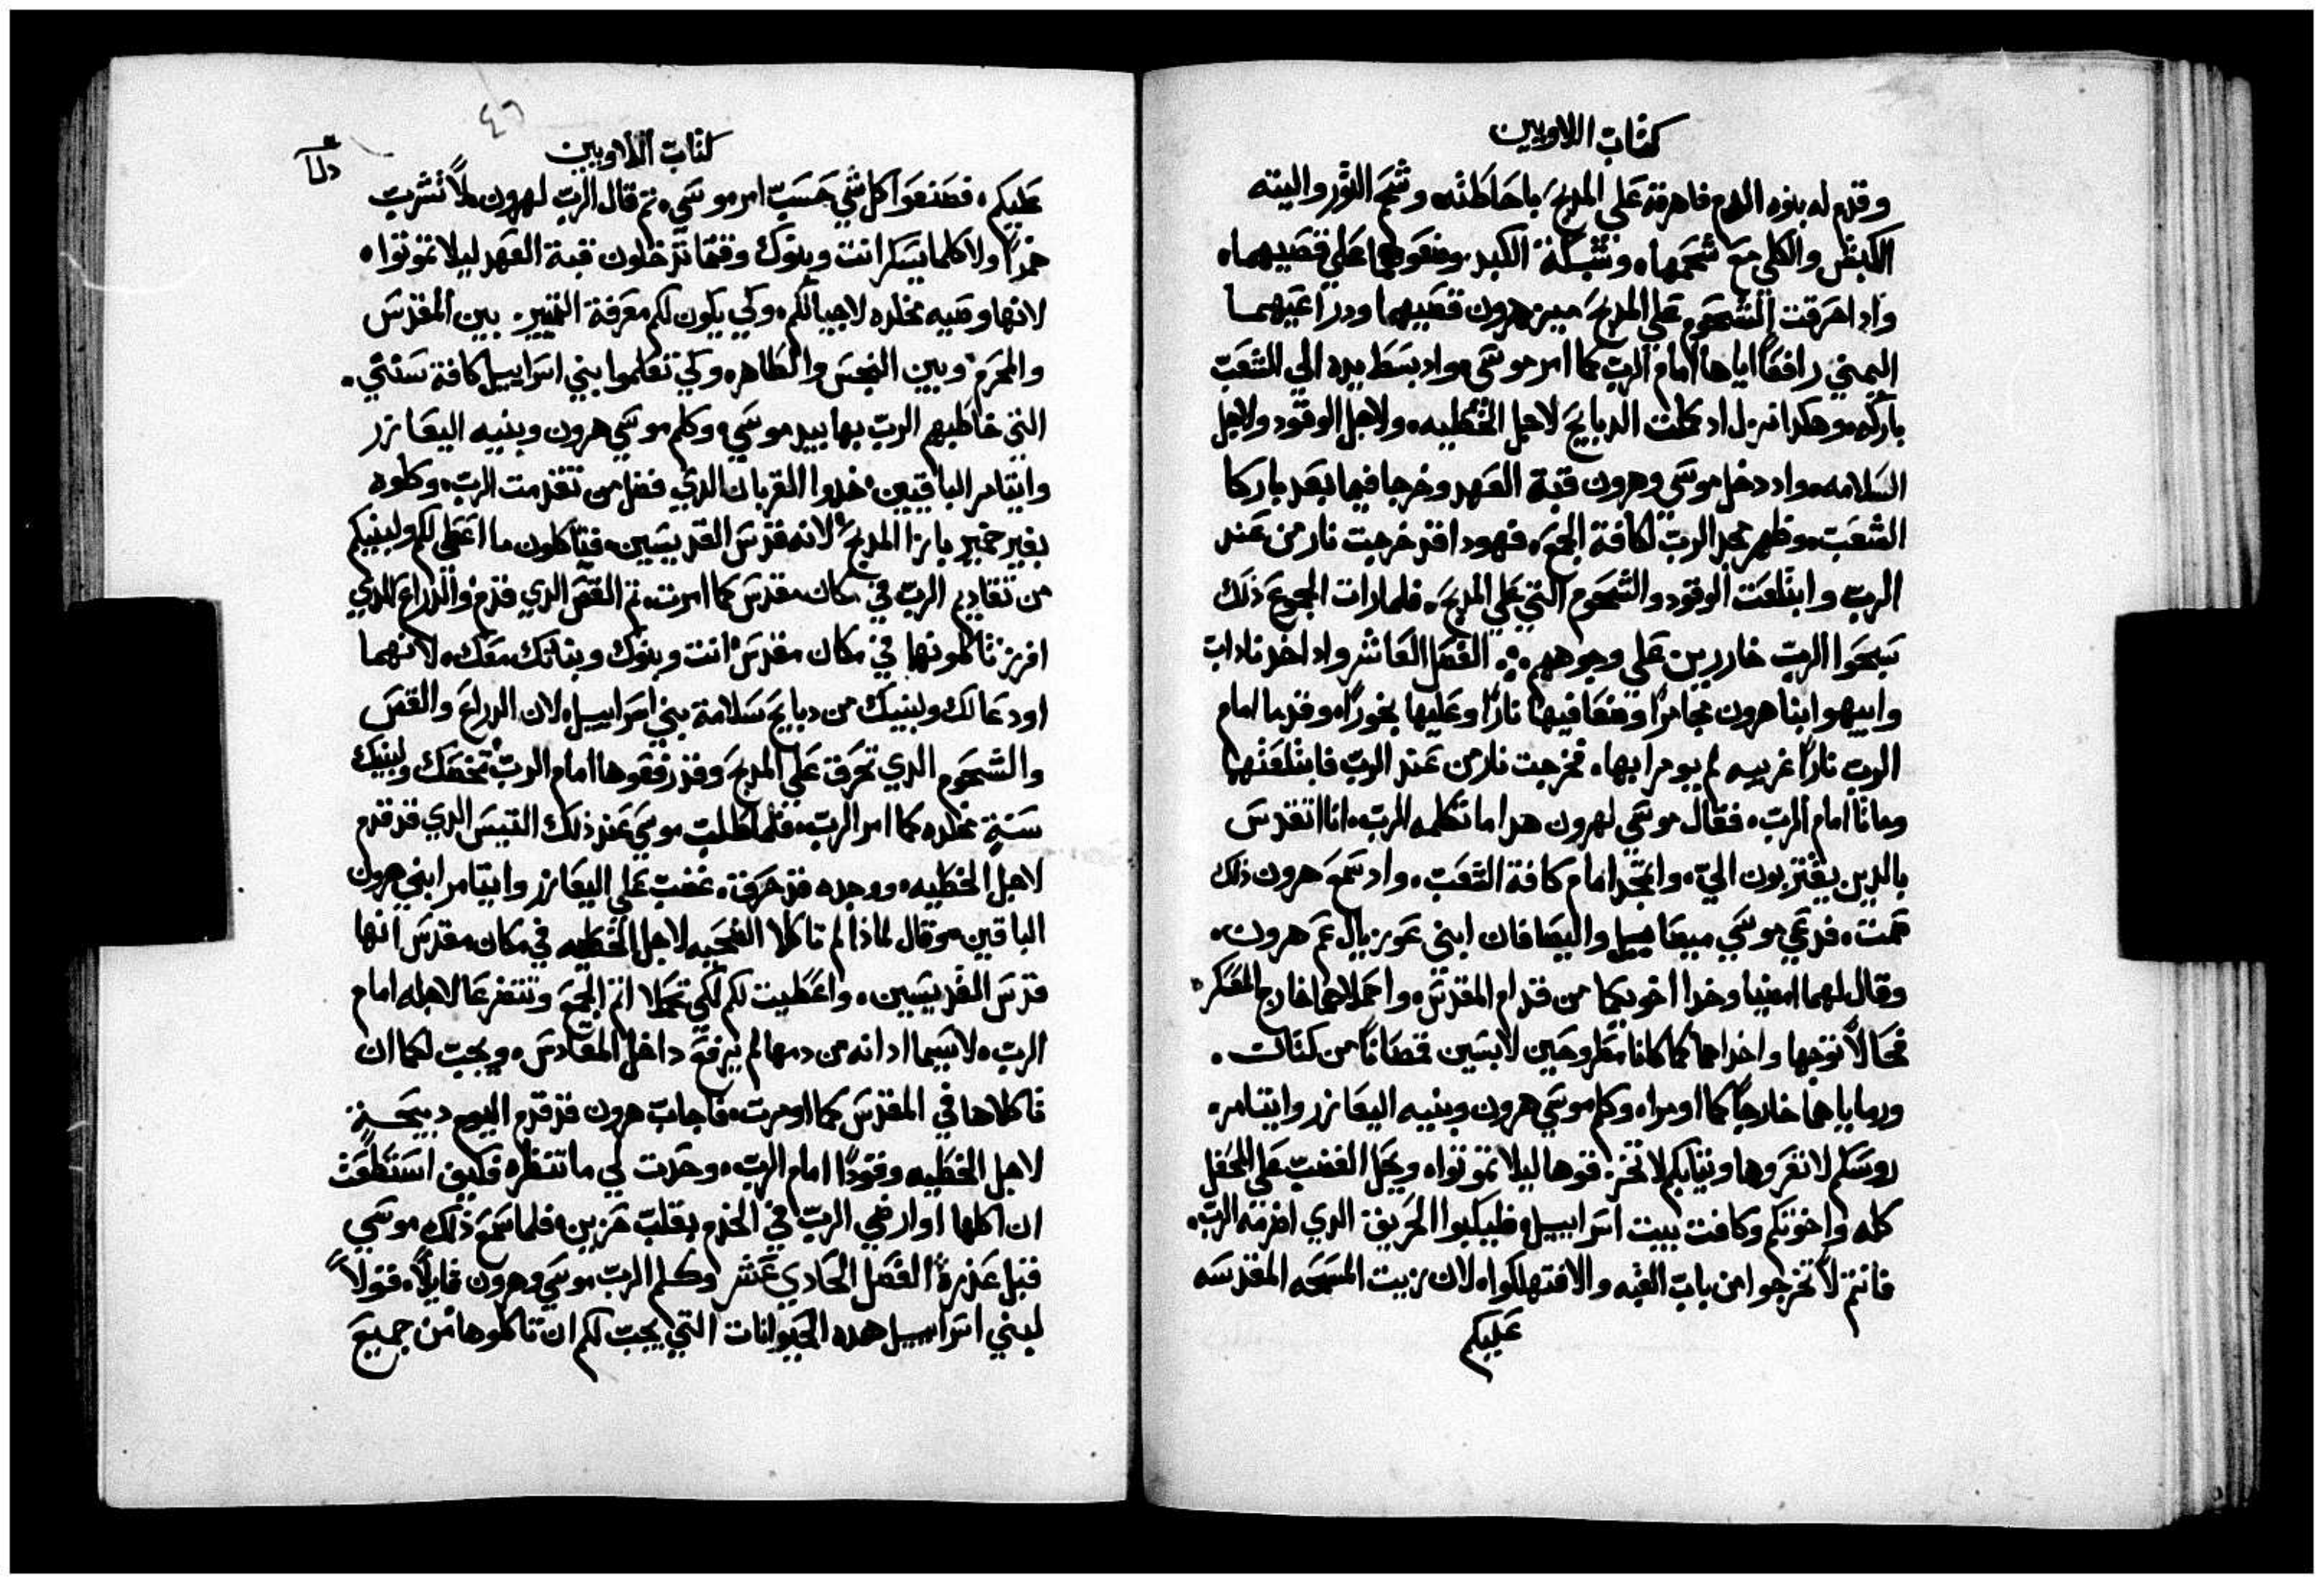 كتاب اللاويين
وقدم له بنوه الدم فاهرقه علي المدبح باحاطته وشحم الثور والية
الكبش والكلي مع شحمها، وشبكة الكبد، وضعوهما علي قصيهما،
واد احرقت الشحوم علي المدبح ميز هرون قصيهما ودراعيهما
اليمني رافعًا اياها امام الرب كما امر موسي، واد بسط يده الي الشعب
باركه، وهكدا نزل اد كملت الدبايح لاجل الخطيه، ولاجل الوقود ولاجل
السلامه، واد دخل موسي وهرون قبة العهد وخرجا فيما بعد باركا
الشعب، وظهر مجد الرب لكافة الجمع، فهودا قد خرجت نار من عند
الرب وابتلعت الوقود والشحوم التي علي المدبح، فلما رات الجموع ذلك
سبحوا الرب خاررين علي وجوههم ، الفصل العاشر واد اخد ناداب
وابيهو ابنا هرون مجامرًا وضعا فيها نارًا وعليها بخورًا، وقدما امام
الرب نارًا غريبه لم يومرا بها، فخرجت نار من عند الرب فابتلعتهما
وماتا امام الرب، فقال موسي لهرون هدا ما تكلمه الرب، انا اتقدس
بالدين يقتربون الي، واتمجد امام كافة الشعب، واد سمع هرون ذلك
صمت، فدعي موسي ميصاييل واليصافان ابني عوزيال عم هرون،
وقال لهما امضيا وخدا اخويكما من قدام المقدس، واحملاهما خارج المعسكر،
فحالًا توجها واخداهما كما كانا مطروحين لابسين قمصانًا من كتان،
ورماياهما خارجًا كما اومرا، وكلم موسي هرون وبنيه اليعازر وايتامر،
روسكم لا تعروها وتيابكم لا تخزقوها ليلا تموتوا، ويحل الغضب علي المحفل
كله واخوتكم وكافت بيت اسراييل، فليبكوا الحريق الدي اضرمه الرب،
فانتم لا تخرجوا من باب القبه والا فتهلكوا، لان زيت المسحه المقدسه
عليكم
٤٦
كتاب اللاويين
عليكم، فصنعوا كل شي حسب امر موسي، تم قال الرب لهرون، لا تشرب
خمرًا ولا كلما يسكر انت وبنوك وقتما تدخلون قبة العهد ليلا تموتوا،
لانها وصيه مخلده لاجيالكم، وكي يكون لكم معرفة التمييز، بين المقدس
والمحرم، وبين النجس والطاهر، وكي تعلموا بني اسراييل كافة سنتي،
التي خاطبهم الرب بها بيد موسي، وكلم موسي هرون وبنيه اليعازر
وايتامر الباقيين، خدوا القربان الدي فضل من تقدمت الرب، وكلوه
بغير خمير بازا المدبح، لانه قدس القديسين، فتاكلون ما اعطي لكم ولبنيكم
من تقاديم الرب في مكان مقدس كما امرت، تم القص الدي قدم والدراع الدي
افرز تاكلونها في مكان مقدس انت وبنوك وبناتك معك، لانهما
اودعا لك ولبنيك من دبايح سلامة بني اسراييل، لان الدراع والقص
والشحوم الدي تحرق علي المدبح وقد رفعوها امام الرب تخصك ولبنيك
سنةٍ مخلده كما امر الرب، فلما طلب موسي عند ذلك التيس الدي قد قدم
لاجل الخطيه، ووجده قد حرق، غضب علي اليعازر وايتامر ابني هرون
الباقين، وقال لماذا لم تاكلا الضحيه لاجل الخطيه في مكان مقدس انها
قدس القديسين، واعطيت لكم لكي تحملا اتم الجمع وتتضرعا لاجله امام
الرب، لا سيما اد انه من دمها لم يرفع داخل المقادس، ويجب لكما ان
تاكلاها في المقدس كما اومرت، فاجاب هرون قد قدم اليوم دبيحةٍ
لاجل الخطيه وقودًا امام الرب، وحدت لي ما تنظره فكيف استطعت
ان اكلها او ارضي الرب في الخدم بقلب حزين، فلما سمع ذلك موسي
قبل عذره، الفصل الحادي عشر وكلم الرب موسي وهرون قايلًا، قولا
لبني اسراييل هده الحيوانات التي يجب لكم ان تاكلوها من جميع